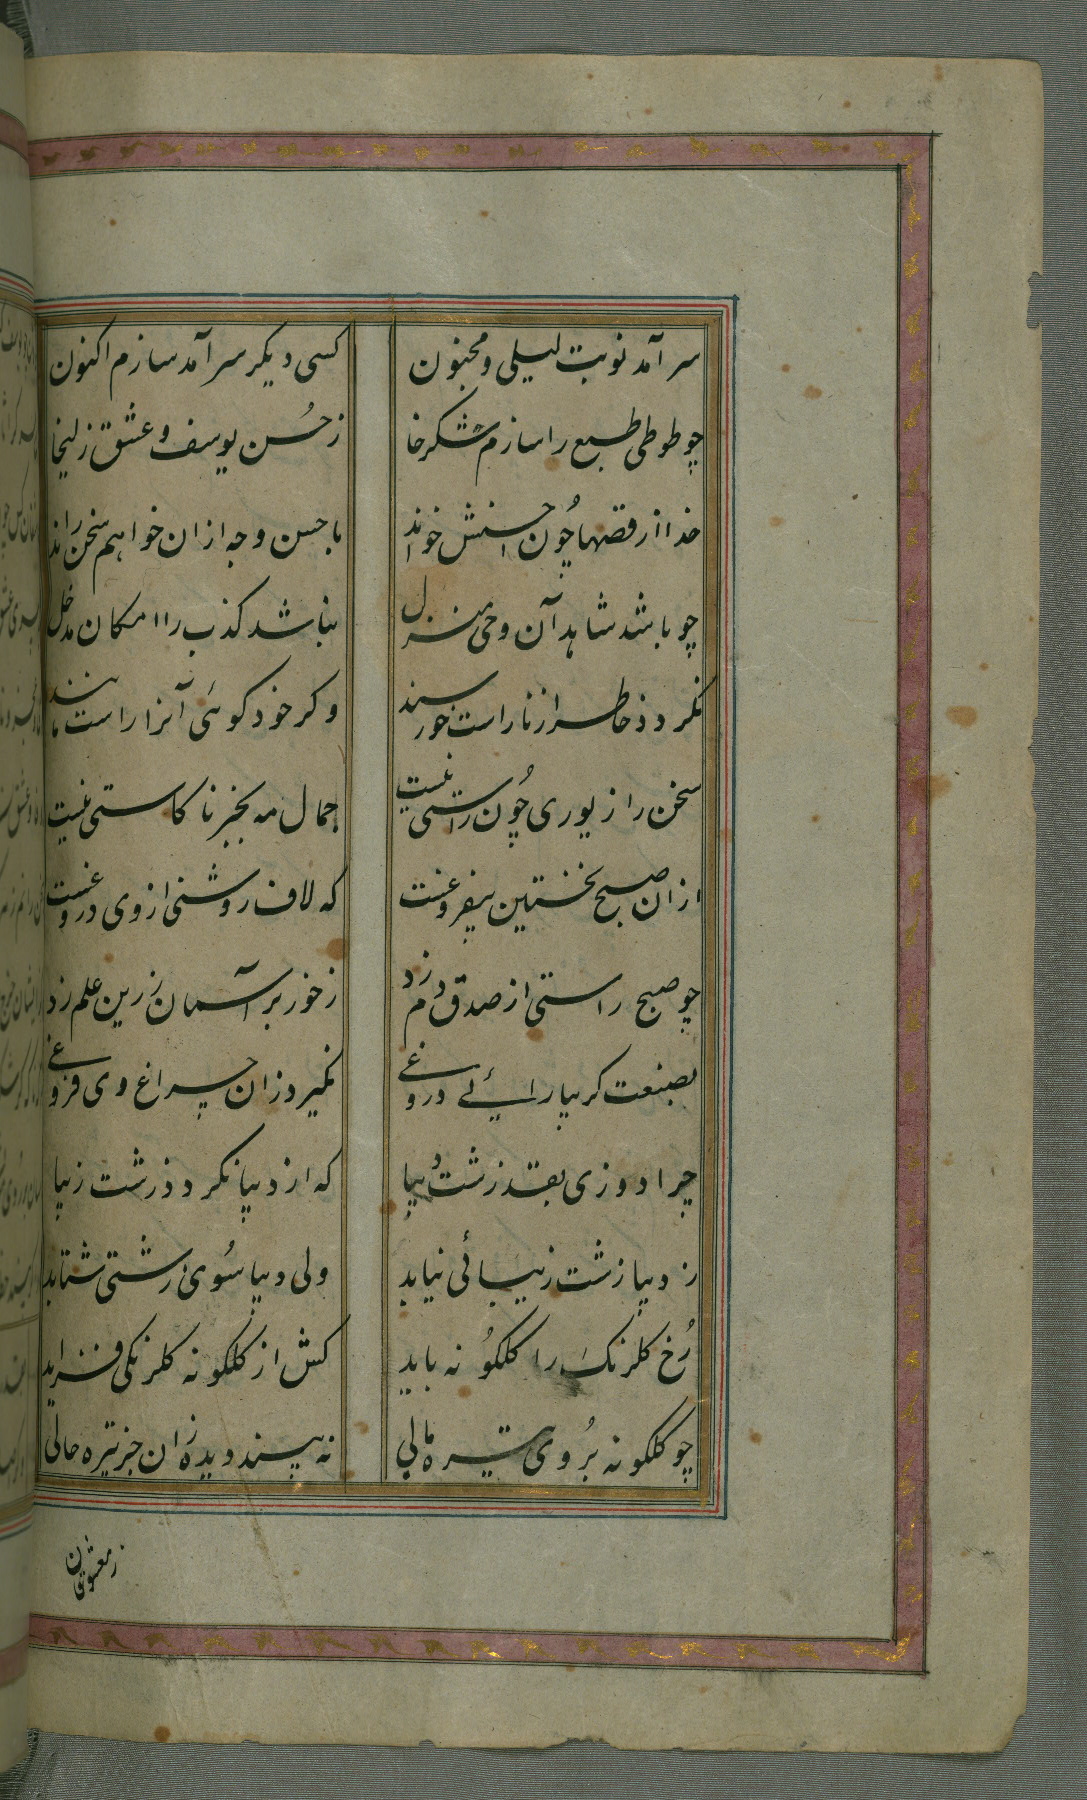 سر آمد نوبت لیلی و مجنون کسی دیکر سر آمد سازم اکنون
چو طوطی طبع را سازم شکرخا ز حُسن یوسف و عشق زلیخا
خدا از قصهها چُون احسنش خواند باحسن وجه ازان خواهم سخن راند
چو باشد شاهد آن وحی منزل نباشد کذب را امکان مدخل
نکردد خاطر از ناراست خورسند وکر خود کوئی آنرا راست مانند
سخن را زیوری چُون راستی نیست جمال مه بجز ناکاستی نیست
ازان صبح نخستین بیفروغست که لاف روشنی از وی دروغست
چو صبح راستی از صدق دم زد ز خور بر آسمان زرین علم زد
بصنعت کر بیارائی دروغی نکیرد زان چراغ وی فروغی
چرا دوزی بقد زشت دیبا که از دیبا نکردد زشت زیبا
ز دیبا زشت زیبائی نیابد ولی دیبا سُوی زشتی شتابد
رُخ کلرنک را کلکونه باید کش از کلکونه کلرنکی فزاید
چو کلکونه بُروی تیره مالی نه بیند دیده زان جز تیره حالی
ز معشوقان